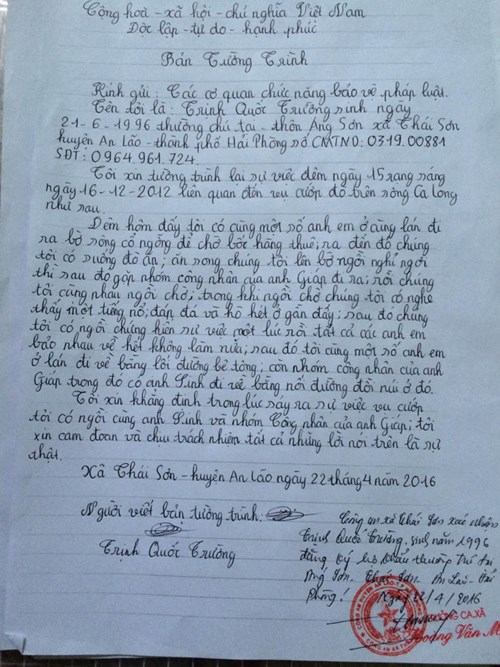 Cộng hoà - xã hội - chủ nghĩa Việt Nam
Độc lập - tự do - hạnh phúc
Bản Tường Trình
Kính gửi: Các cơ quan chức năng bảo vệ pháp luật.
Tên tôi là: Trịnh Quốc Trường sinh ngày
21-6-1996 thường chú tại - thôn Áng Sơn xã Thái Sơn
huyện An Lão - thành phố Hải Phòng số CMTND: 0319.00881
SĐT: 0964.961.724.
Tôi xin tường trình lại sự việc đêm ngày 15 rạng sáng
ngày 16-12-2012 liên quan đến vụ cướp đò trên sông Ca Long
như sau.
Đêm hôm đấy tôi có cùng một số anh em ở cùng lán đi
ra bờ sông cổ ngỗng để chờ bốc hàng thuê; ra đến đó chúng
tôi có xuống đò ăn; ăn song chúng tôi lên bờ ngồi nghỉ ngơi
thì sau đó gặp nhóm công nhân của anh Giáp đi ra; rồi chúng
tôi cùng nhau ngồi chờ; trong khi ngồi chờ chúng tôi có nghe
thấy một tiếng nổ; đấn đá và hô hét ở gần đấy; sau đó chúng
tôi có ngồi chứng kiến sự việc một lúc rồi tất cả các anh em
bảo nhau về hết không làm nữa; sau đó tôi cùng một số anh em
ở lán đi về bằng lối đường bê tông; còn nhóm công nhân của anh
Giáp trong đó có anh Sinh đi về bằng nối đường đồi núi ở đó.
Tôi xin khẳng định trong lúc sảy ra sự việc vụ cướp
tôi có ngồi cùng anh Sinh và nhóm Công nhân của anh Giáp; tôi
xin cam đoan và chịu trách nhiệm tất cả những lời nói trên là sự
thật.
Xã Thái Sơn - huyện An Lão ngày 22 tháng 4 năm 2016
Người viết bản tường trình.
Trịnh Quốc Trường
Công an xã Thái Sơn xác nhận
Trịnh Quốc Trường, sinh năm 1996
đăng ký hộ khẩu thường trú tại
Áng Sơn, Thái Sơn, An Lão - Hải
Phòng! Ngày 22/4/2016
CA XÃ
Hoàng Văn